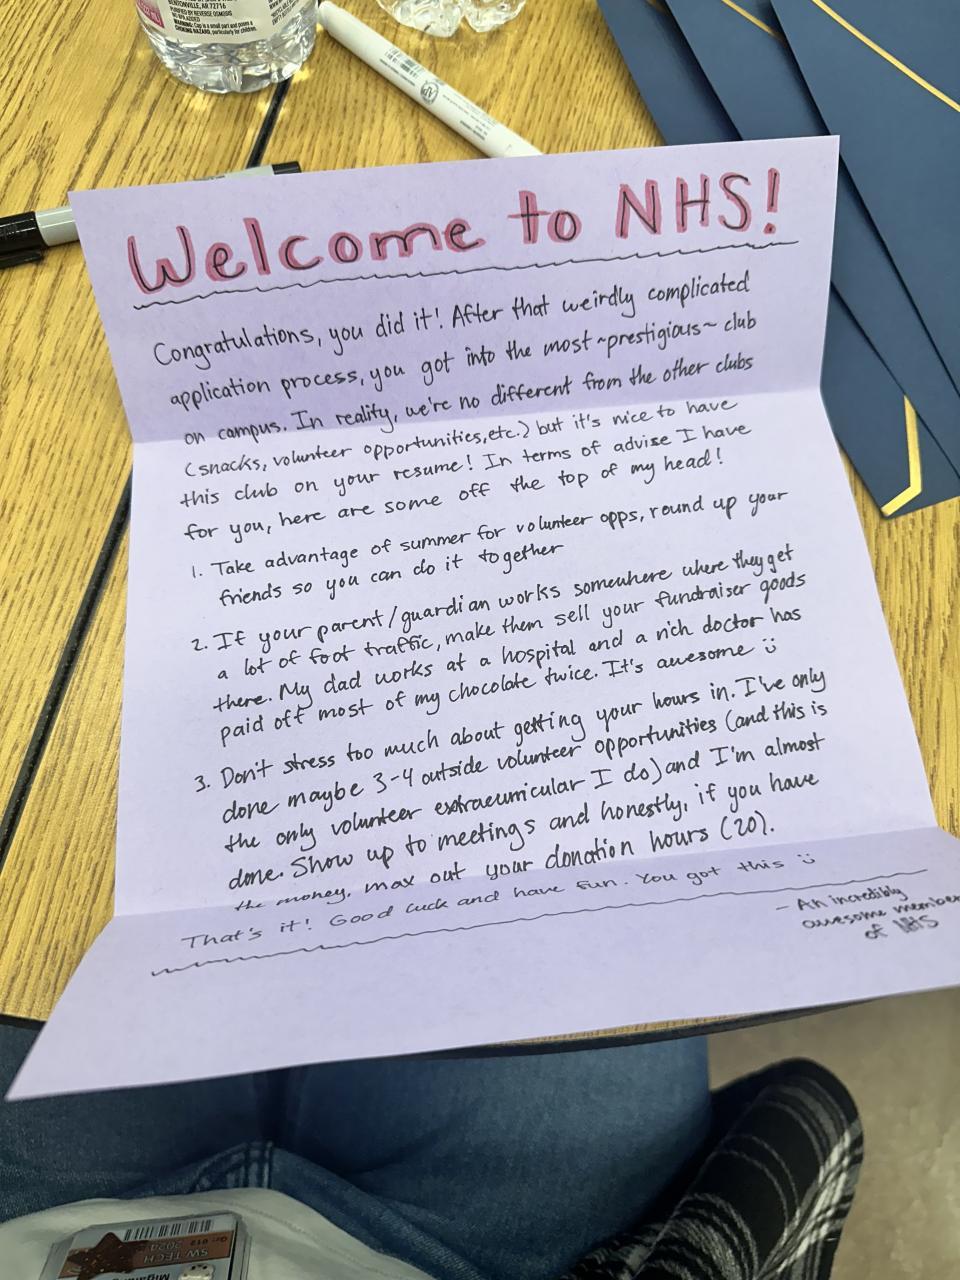 BENTONVILLE, AR 72716
PURIFIED BY REVERSE OSMOSIS
WARNING: Cap is a small part and poses a
CHOKING HAZARD, particularly for children.
AP
Welcome to NHS!
Congratulations, you did it! After that weirdly complicated
application process, you got into the most ~prestigious~ club
on campus. In reality, we're no different from the other clubs
(snacks, volunteer opportunities, etc.) but it's nice to have
this club on your resume! In terms of advise I have
for you, here are some off the top of my head!
1. Take advantage of summer for volunteer opps, round up your
friends so you can do it together
2. If your parent/guardian works somewhere where they get
a lot of foot traffic, make them sell your fundraiser goods
there. My dad works at a hospital and a rich doctor has
paid off most of my chocolate twice. It's awesome ü
3. Don't stress too much about getting your hours in. I've only
done maybe 3-4 outside volunteer opportunities (and this is
the only volunteer extracurricular I do) and I'm almost
done. Show up to meetings and honestly, if you have
the money, max out your donation hours (20).
That's it! Good luck and have fun. You got this ü
- An incredibly
awesome member
of NHS
SW TECH
2024